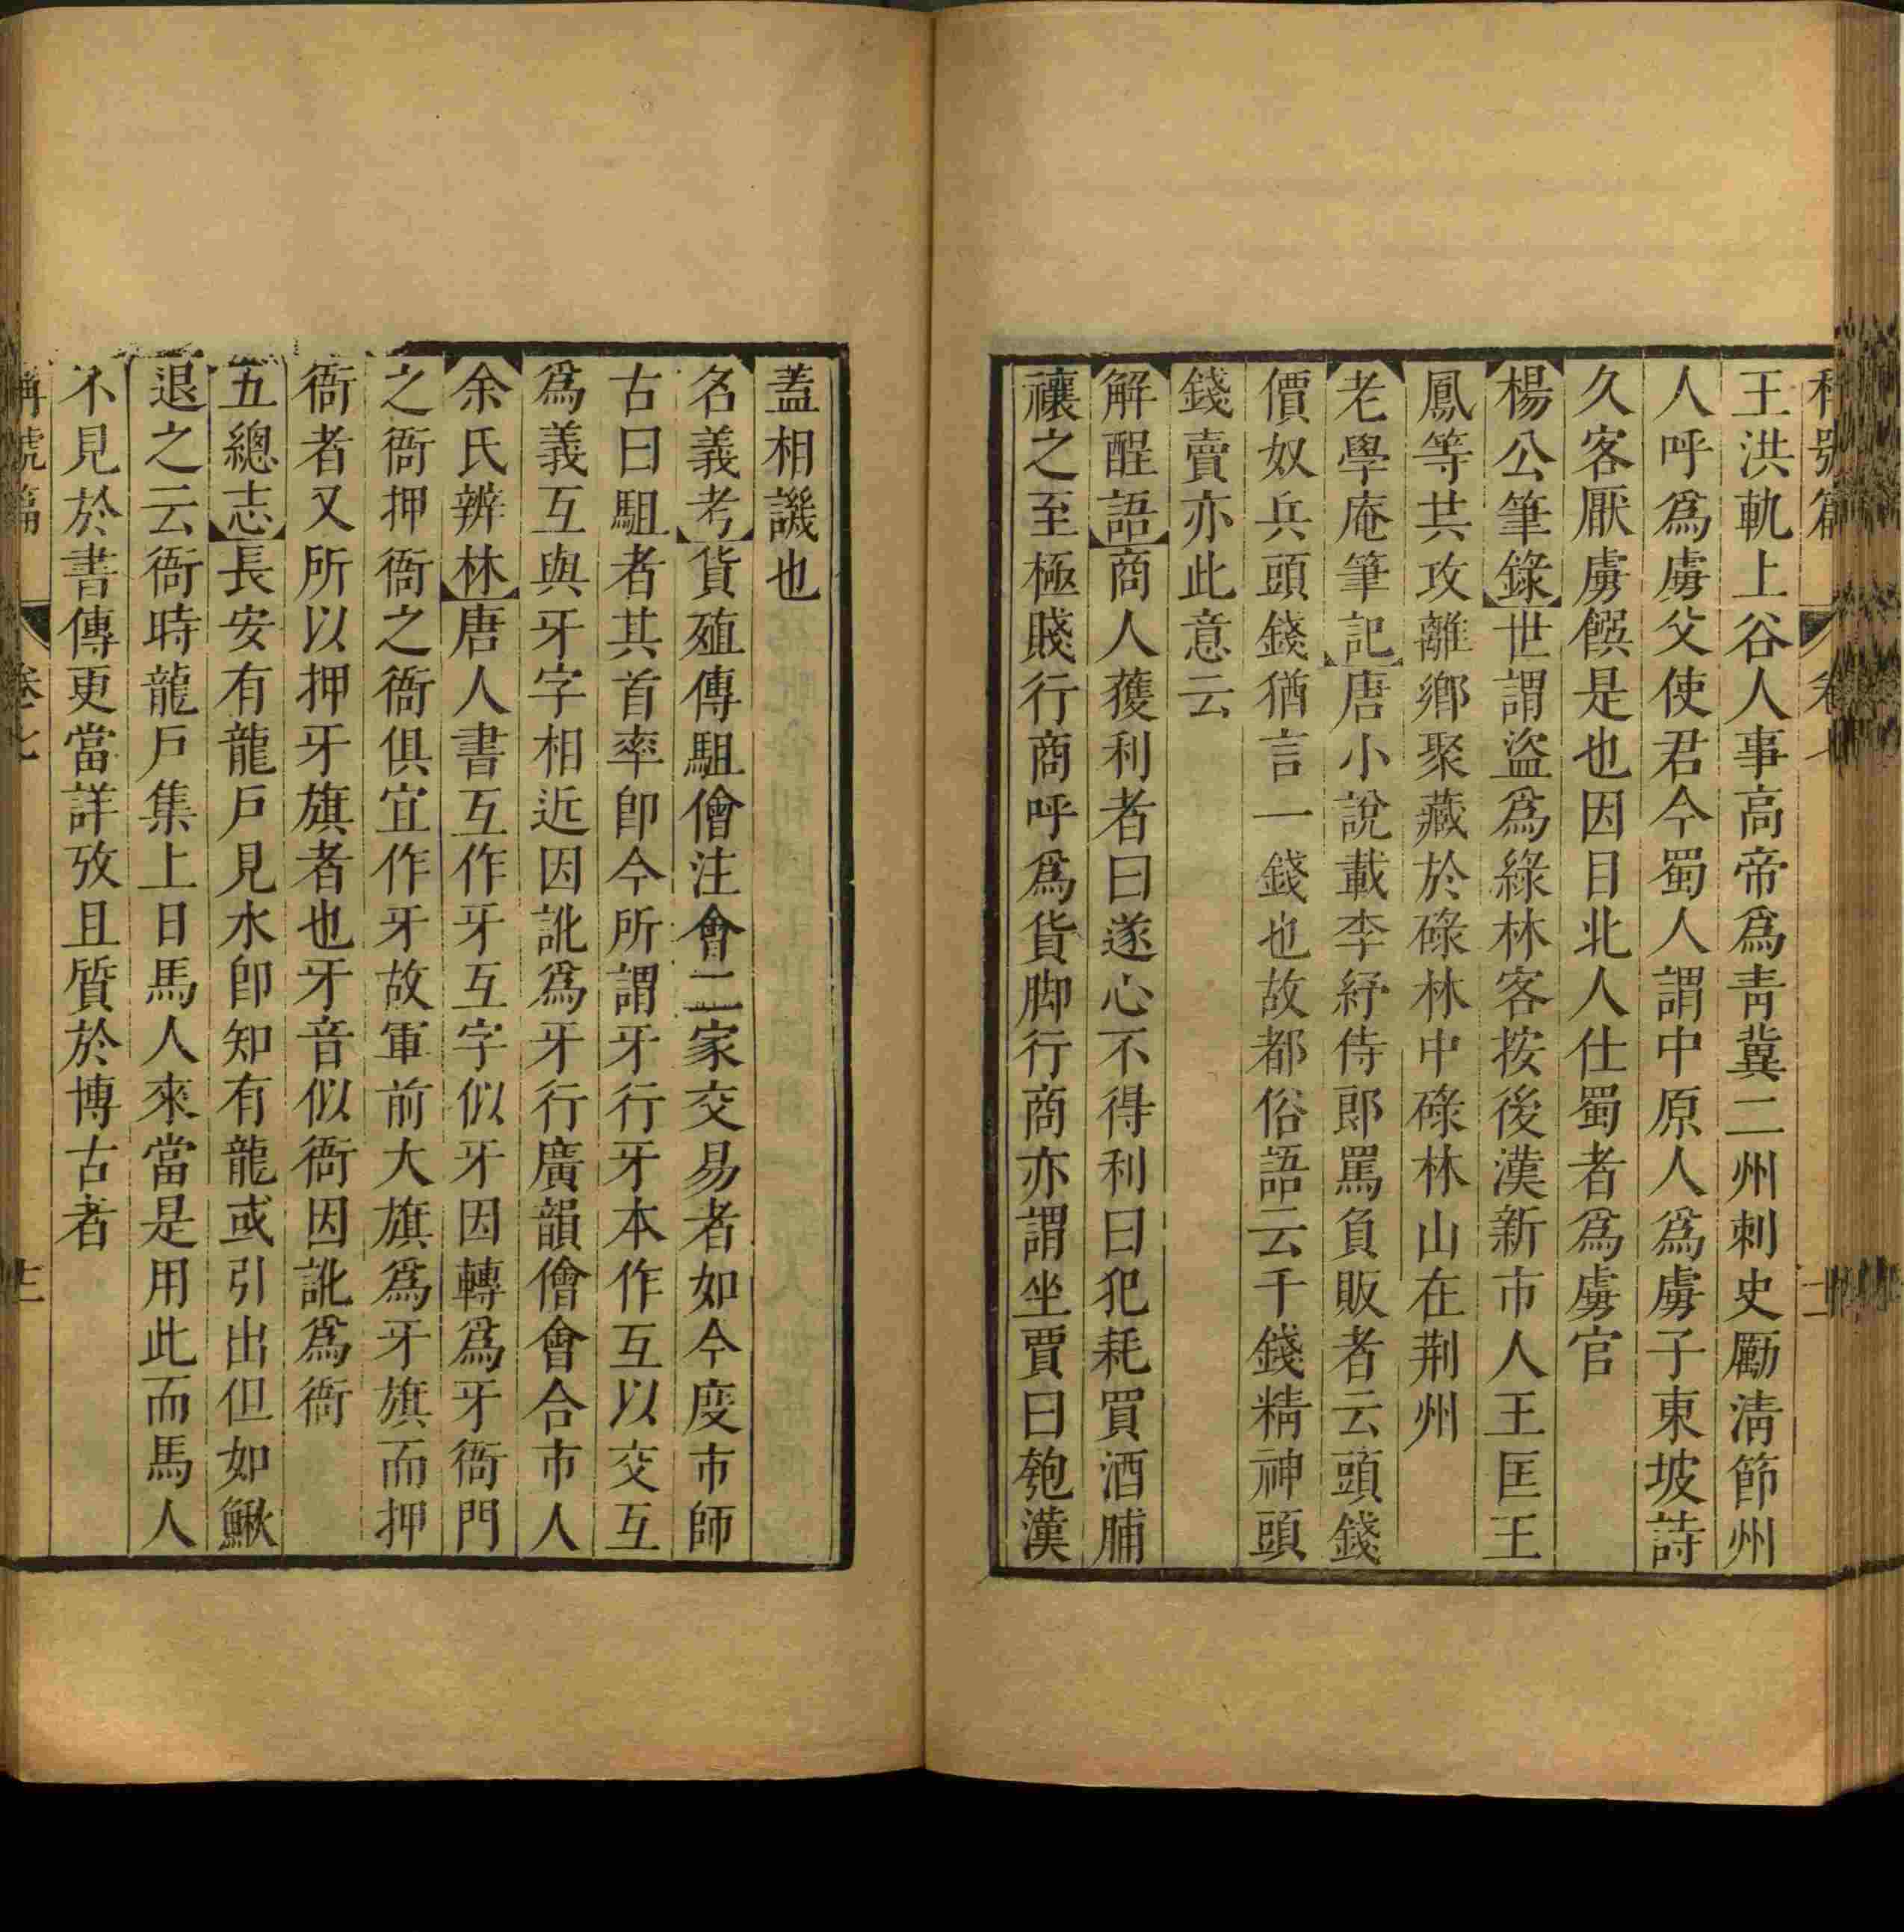 王洪軌上谷人事高帝爲靑冀二州刺史勵淸節州
人呼爲虜父使君今蜀人謂中原人爲虜子東坡詩
久客厭虜饌是也因目北人仕蜀者爲虜官
楊公筆錄世謂盜爲綠林客按後漢新市人王匡王
鳳等共攻離鄉聚藏於碌林中碌林山在荆州
老學庵筆記唐小說載李紓侍郎罵負販者云頭錢
價奴兵頭錢猶言一錢也故都俗語云千錢精神頭
錢賣亦此意云
解醒語商人獲利者曰遂心不得利曰犯耗買酒脯
禳之至極賤行商呼爲貨脚行商亦謂坐賈曰匏漢
蓋相譏也
名義考貨殖傳駔儈注會二家交易者如今度市師
古曰駔者其首率卽今所謂牙行牙本作互以交互
爲義互與牙字相近因訛爲牙行廣韻儈會合市人
余氏辨林唐人書互作牙互字似牙因轉爲牙衙門
之衙押衙之衙俱宜作牙故軍前大旗爲牙旗而押
衙者又所以押牙旗者也牙音似衙因訛爲衙
五總志長安有龍戶見水卽知有龍或引出但如鰍
退之云衙時龍戶集上日馬人來當是用此而馬人
不見於書傳更當詳攷且質於博古者
稱號篇 卷七 十二